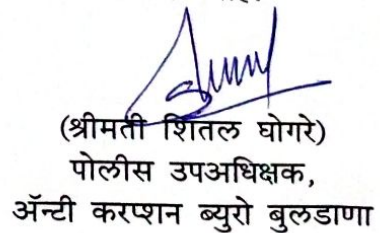 (श्रीमती शितल घोगरे)
पोलीस उपअधिक्षक,
ॲन्टी करप्शन ब्युरो बुलडाणा